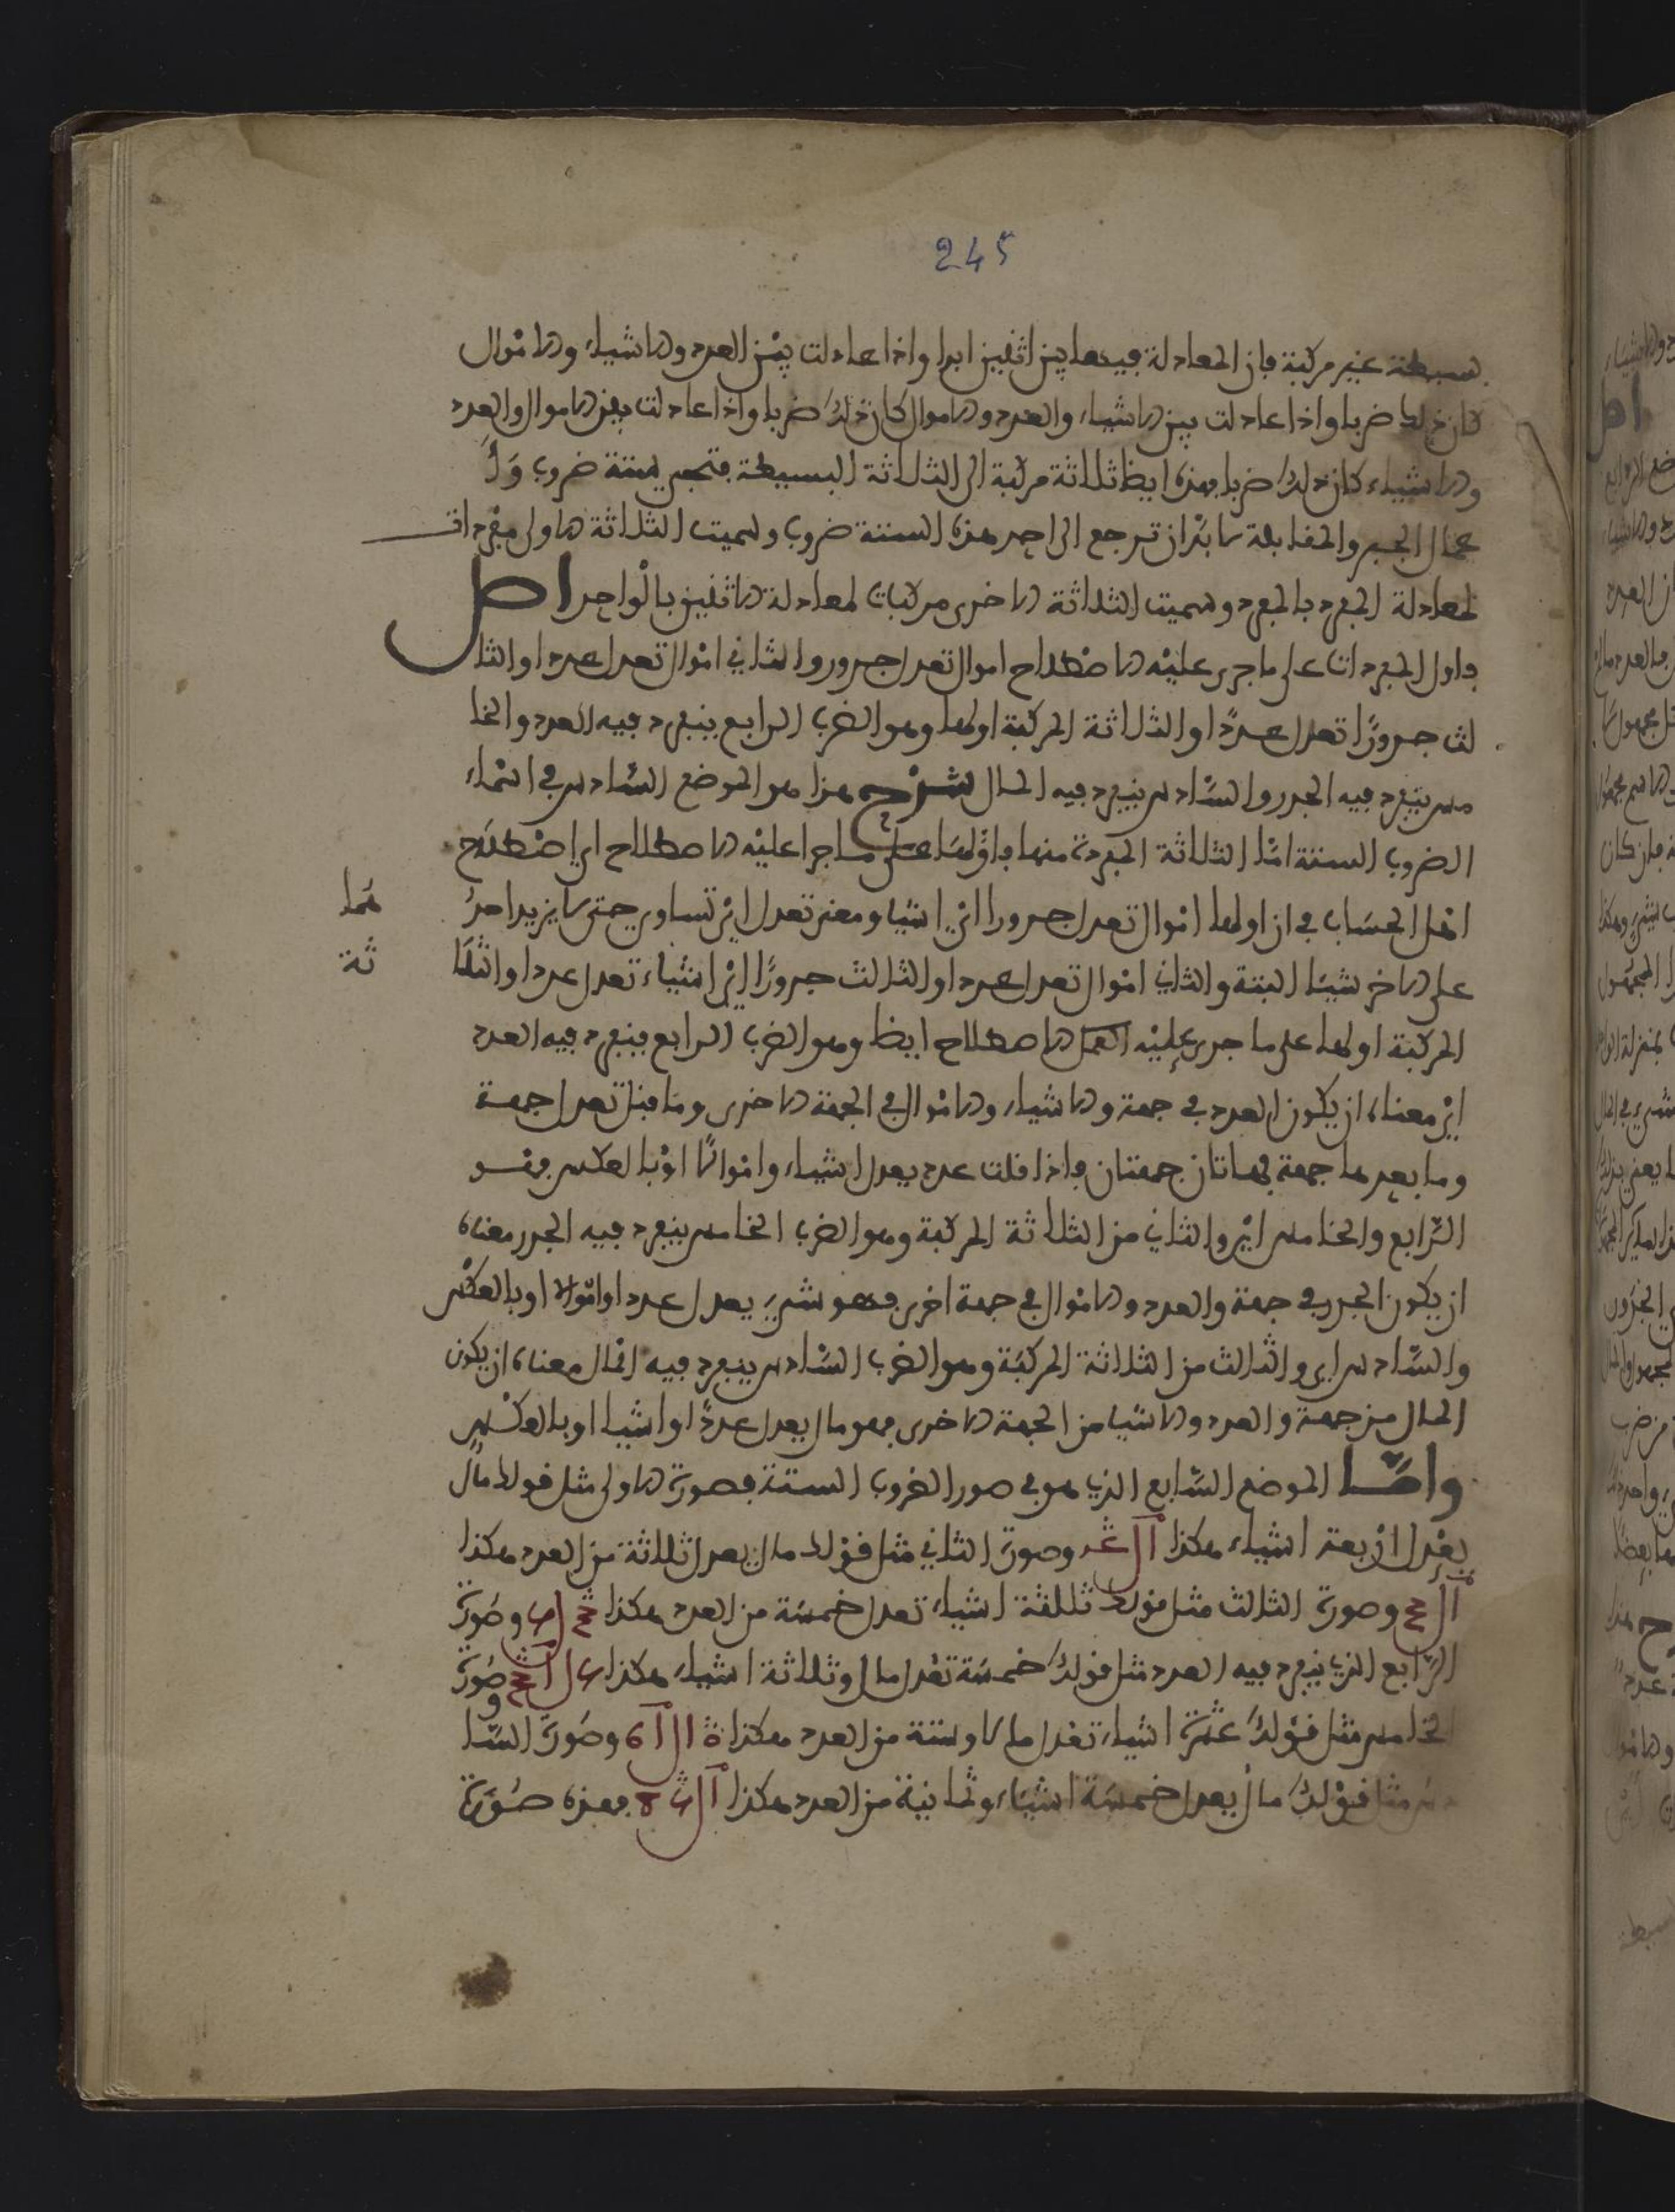 245
بسيطة غير مركبة فإن المعادلة فيها بين اثنين ابدا واذا عادلت بين العدد والاشياء والاموال
كان ذلك ضربا واذا عادلت بين الاشياء والعدد والاموال كان ذلك ضربا واذا عادلت بين الاموال والعدد
والاشياء كان ذلك ضربا فهذه ايظا ثلاثة مركبة الى الثلاثة البسيطة فتجي ستة ضروب وأ
عمال الجبر والمقابلة لا بد ان ترجع الى احد هذه الستة ضروب وسميت الثلاثة الاولى مفردات
لمعادلة المفرد بالمفرد وسميت الثلاثة الاخرى مركبات لمعادلة الاثنين بالواحد اص
فاول المفردات على ما جرى عليه الاصطلاح اموال تعدل جدور والثاني اموال تعدل عددا والثا
لث جدورًا تعدل عددًا والثلاثة المركبة اولها وهو الضرب الرابع ينفرد فيه العدد والخا
مس ينفرد فيه الجدر والسادس ينفرد فيه المال شرح هذا هو الموضع السادس في اسماء
الضروب الستة اما الثلاثة المفردة منها فاولها على ما جرا عليه الاصطلاح اي اصطلاح
اهل الحساب في ان اولها اموال تعدل جدورا اي اشيا ومعنى تعدل اي تساوي حتى لا يزيد احد هما
على الاخر شيئا البتة والثاني اموال تعدل عددا والثالث جدورًا اي اشياء تعدل عددا والثلا ثة
المركبة اولها على ما جرى عليه العمل الاصطلاح ايظا وهو الضرب الرابع ينفرد فيه العدد
اي معناه ان يكون العدد في جهة والاشياء والاموال في الجهة الاخرى وما قبل تعدل جهة
وما بعدها جهة فهاتان جهتان فاذا قلت عدد يعدل اشياء واموالًا او بالعكس فهو
الرابع والخامس اي والثاني من الثلاثة المركبة وهو الضرب الخامس ينفرد فيه الجدر معناه
ان يكون الجدر في جهة والعدد والاموال في جهة اخرى فهو شيء يعدل عددا واموالا او بالعكس
والسادس اي والثالث من الثلاثة المركبة وهو الضرب السادس ينفرد فيه المال معناه ان يكون
المال من جهة والعدد والاشيا من الجهة الاخرى فهو مال يعدل عددًا واشيا او بالعكس
واما الموضع السابع الذي هو في صور الضروب الستة فصورة الاولى مثل قولك مال
يعدل اربعة اشياء هكذا وصورة الثاني مثل قولك مال يعدل ثلاثة من العدد هكذا
وصورة الثالث مثل قولك ثلاثة اشياء تعدل خمسة من العدد هكذا وصورة
الرابع الذي ينفرد فيه العدد مثل قولك خمسة تعدل مال وثلاثة اشياء هكذا وصورة
الخامس مثل قولك عشرة اشياء تعدل مالا وستة من العدد هكذا وصورة السا
دس مثل قولك مال يعدل خمسة اشياء وثمانية من العدد هكذا فهذه صورة